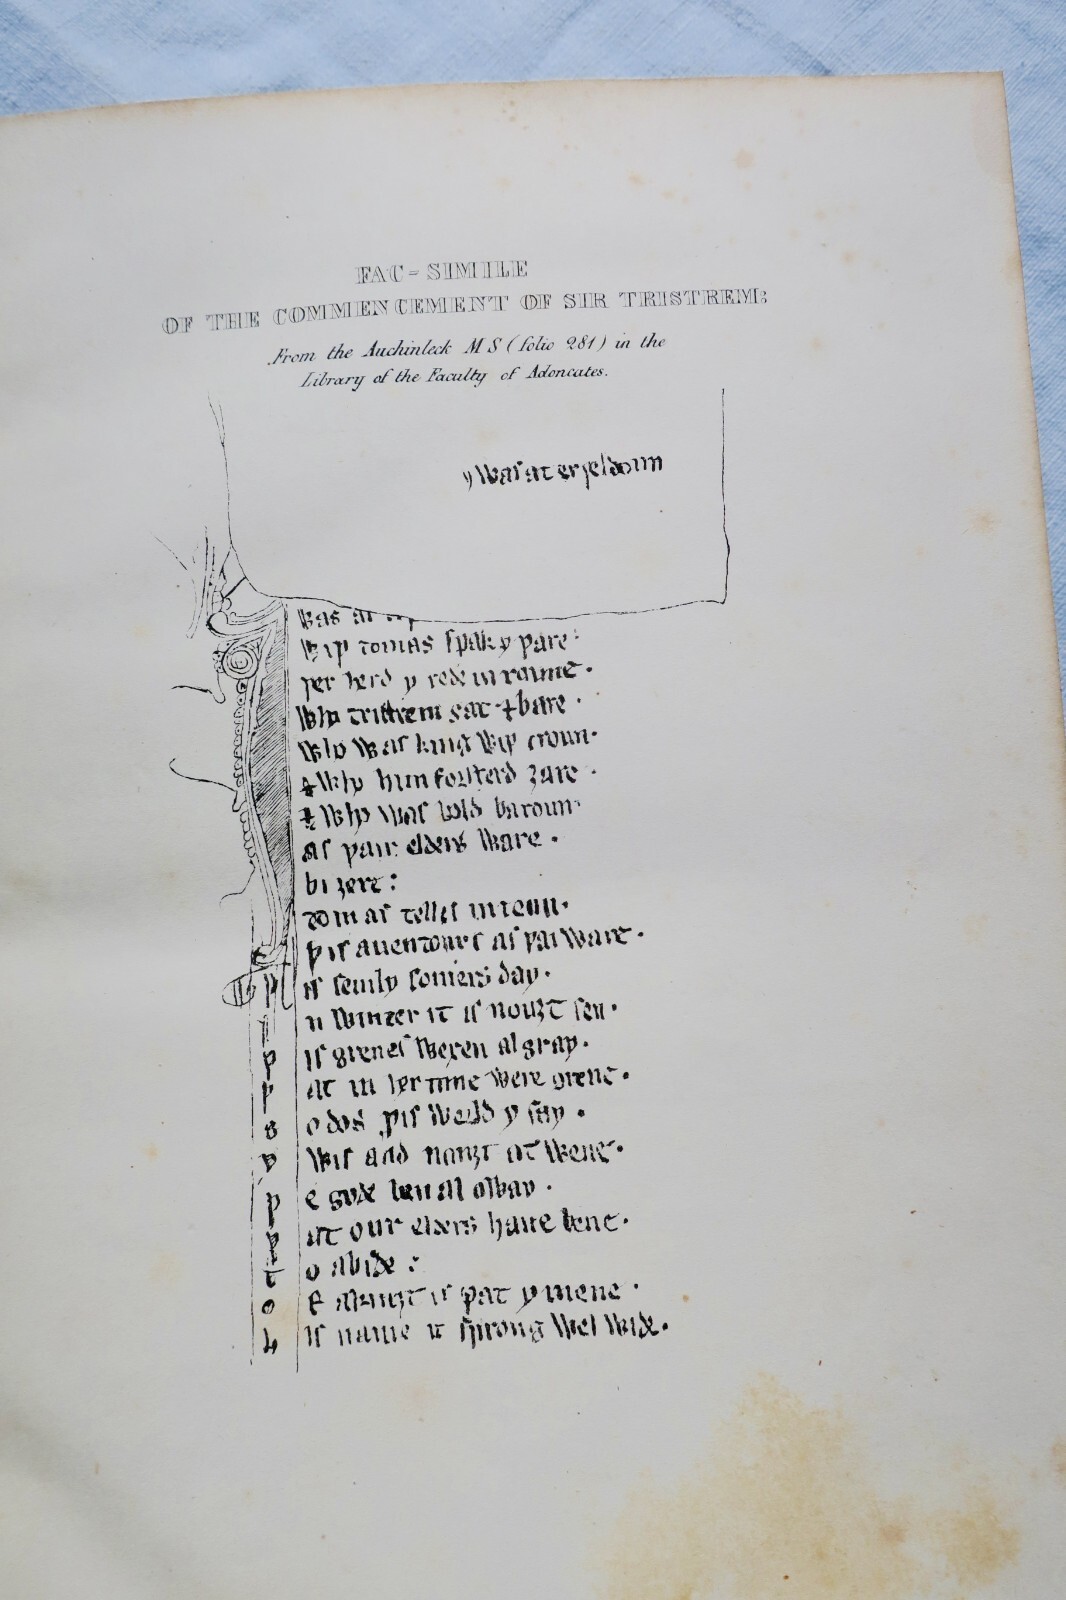 FAC=SIMILE
OF THE COMMENCEMENT OF SIR TRISTREM:
From the Auchinleck MS (folio 281) in the
Library of the Faculty of Adoncates.
y was at erþeldoun
was at
wiþ tomas spak y þare
þer herd y rede in roune.
who tristrem gat & bare.
who was king wiþ croun.
& who him forsterd ȝare.
& who was bold baroun
as þair elders ware.
bi ȝere:
tomas telles in toun.
þis auentours as þai ware.
þ is semly somers day.
in winter it is nouȝt sen.
þ is greues wexen al gray.
þ at in her time were grene.
s o dos þis werld y say.
y wis and nouȝt at wene.
þ e gode ben al oway.
þ at our elders haue bene.
t o abide:
o f a knyȝt is þat y mene.
h is name it sprong wel wide.